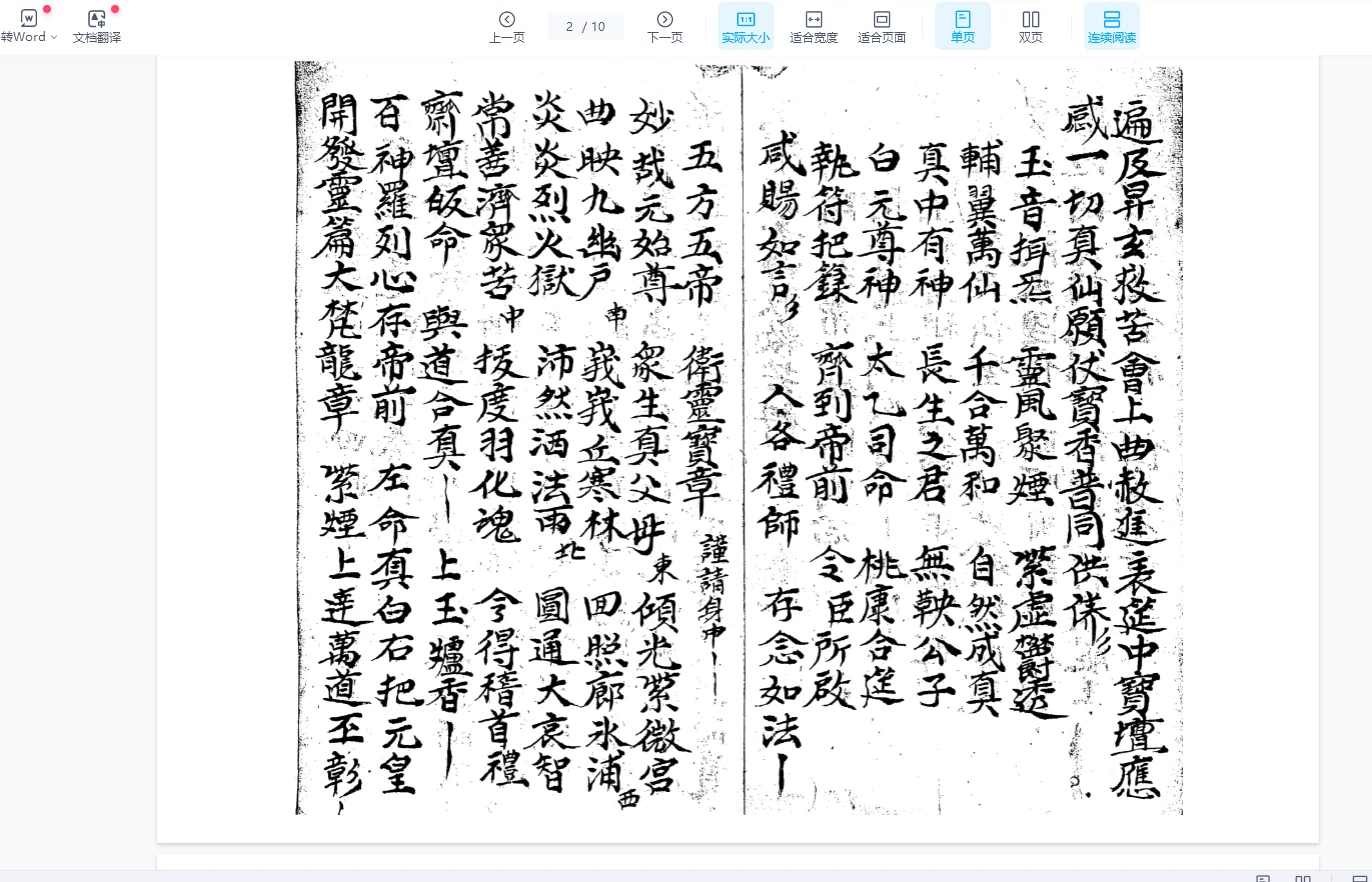 转Word
文档翻译
上一页
2 / 10
下一页
实际大小
适合宽度
适合页面
单页
双页
连续阅读
遍及昇玄救苦會上曲赦進表筵中寶壇應
感一切真仙願仗寶香普同供养
玉音揖炁 靈風聚煙 紫虛欝透
輔翼萬仙 千合萬和 自然成真
真中有神 長生之君 無鞅公子
白元尊神 太乙司命 桃康合筵
執符把籙 齊到帝前 令臣所啟
咸賜如言 入各禮師 存念如法
五方五帝 衛靈寶章 謹請身中
妙哉元始尊 衆生真父母 東 傾光紫微宮
曲映九幽戶 南 峩峩丘寒林 回照廊氷浦 西
炎炎烈火獄 沛然洒法雨 北 圓通大哀智
常善濟衆苦 中 拔度羽化魂 令得稽首禮
齋壇皈命 與道合真 上玉爐香
百神羅列心存帝前 左命真白右把元皇
開發靈篇大梵龍章 紫煙上達萬道丕彰